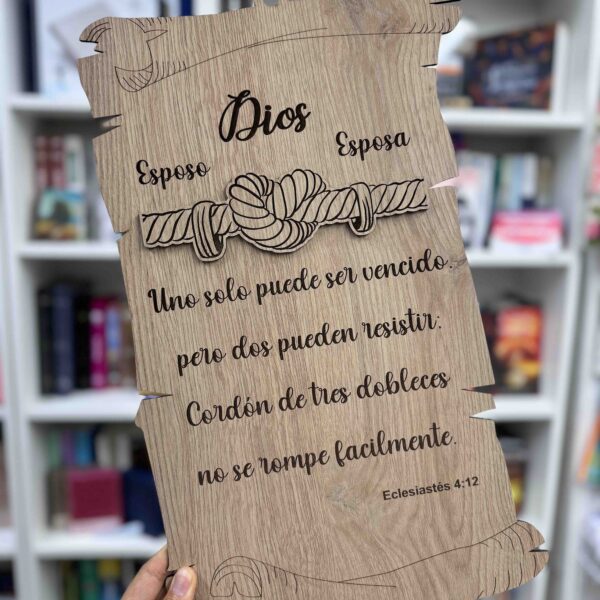 Dios
Esposo
Esposa
Uno solo puede ser vencido.
pero dos pueden resistir:
Cordón de tres dobleces
no se rompe facilmente.
Eclesiastés 4:12